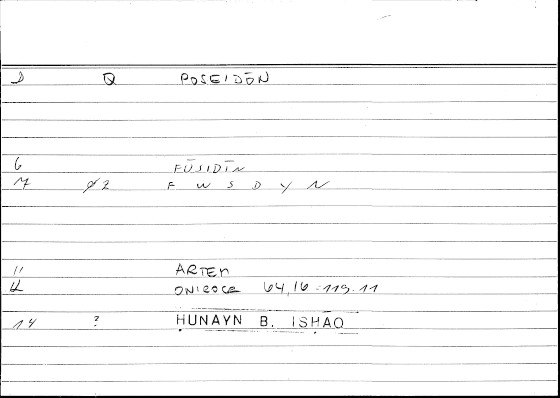 D Q POSEIDŌN
6 FŪSIDĪN
7 Ø2 F W S D Y N
11 ARTEM
12 ONIROCR 64,16 = 119.11
14 ? ḤUNAYN B. ISḤĀQ